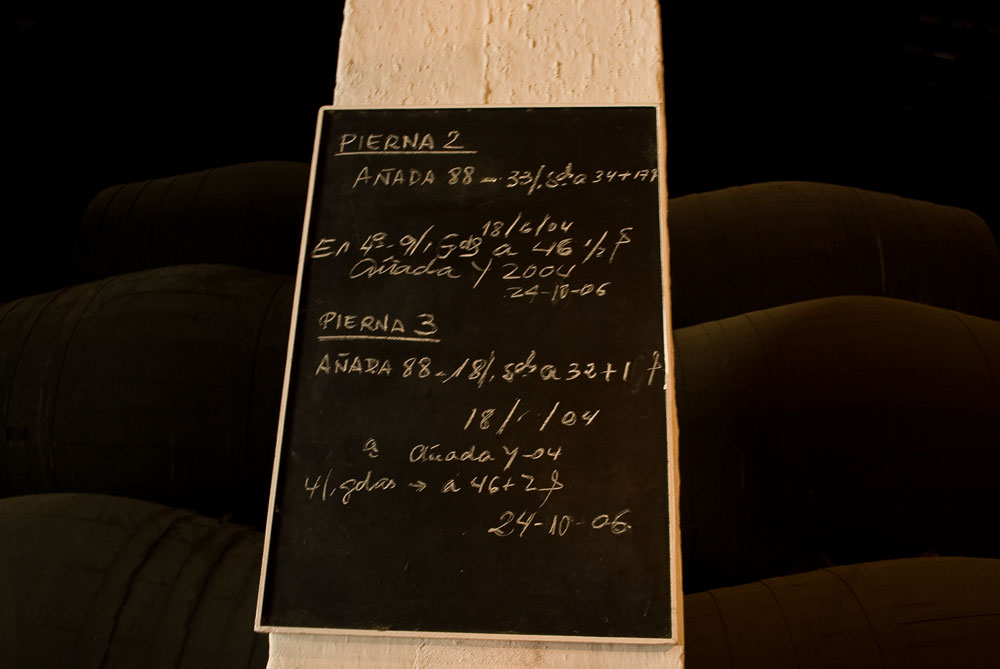 PIERNA 2
AÑADA 88 - 33/, gds a 34+17
18/6/04
En 4ª - 9/, gds a 46
Añada Y 2004
24-10-06
PIERNA 3
AÑADA 88 - 18/, gds a 32+1
18/ /04
a Añada Y-04
4/, gdas → a 46+2
24-10-06